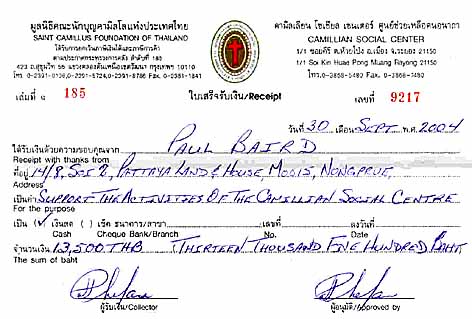 มูลนิธิคณะนักบุญคามิลโลแห่งประเทศไทย
SAINT CAMILLUS FOUNDATION OF THAILAND
ได้รับการยกเว้นภาษีเงินได้และภาษีการค้า
ตามประกาศกระทรวงการคลัง ลำดับที่ 185
คามิลเลียน โซเชียล เซนเตอร์ ศูนย์ช่วยเหลือคนอนาถา
CAMILLIAN SOCIAL CENTER
1/1 ซอยคีรี ต.ห้วยโป่ง อ.เมือง จ.ระยอง 21150
1/1 Soi Kiri Huae Pong Muang Rayong 21150
เล่มที่ 185
ใบเสร็จรับเงิน/Receipt
เลขที่ 9217
วันที่ 30 เดือน SEPT พ.ศ. 2004
ได้รับเงินด้วยความขอบคุณจาก PAUL BAIRD
Receipt with thanks from
ที่อยู่ 14/8, SOI 2, PATTAYA LAND & HOUSE, MOO15, NONGPRUE,
Address
เป็นค่า SUPPORT THE ACTIVITIES OF THE CAMILLIAN SOCIAL CENTRE
For the purpose
เป็น (✓) เงินสด ( ) เช็ค ธนาคาร/สาขา เลขที่ ลงวันที่
Cash Cheque Bank/Branch No. Date
จำนวนเงิน 13,500.THB THIRTEEN THOUSAND FIVE HUNDRED BAHT
The sum of baht
ผู้รับเงิน/Collector
ผู้อนุมัติ/Approved by